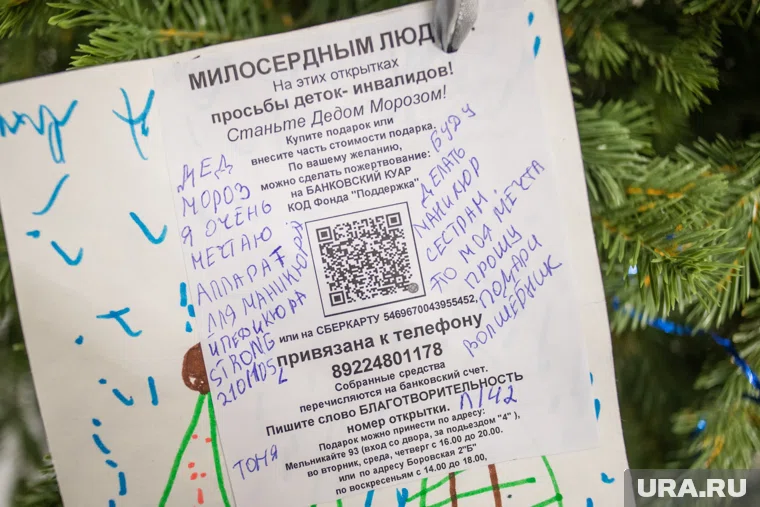 МИЛОСЕРДНЫМ ЛЮД
На этих открытках
просьбы деток- инвалидов!
Станьте Дедом Морозом!
Купите подарок или
внесите часть стоимости подарка,
По вашему желанию,
можно сделать пожертвование:
на БАНКОВСКИЙ КУАР
КОД Фонда "Поддержка"
или на СБЕРКАРТУ 5469670043955452,
привязана к телефону
89224801178
Собранные средства
перечисляются на банковский счет.
Пишите слово БЛАГОТВОРИТЕЛЬНОСТЬ
номер открытки. Л/142
Подарок можно принести по адресу:
Мельникайте 93 (вход со двора, за подьездом "4" ),
во вторник, среда, четверг с 16.00 до 20.00.
или по адресу Боровская 2"Б"
по воскресеньям с 14.00 до 18.00,
ДЕД
МОРОЗ
Я ОЧЕНЬ
МЕЧТАЮ
АППАРАТ
ДЛЯ МАНИКЮРА
И ПЕДИКЮРА
STRONG
210/105L
БУДУ
ДЕЛАТЬ
МАНИКЮР
СЕСТРАМ
ТО МОЯ МЕЧТА
ПРОШУ
ПОДАРИ
ВОЛШЕБНИК
ТОНЯ
URA.RU